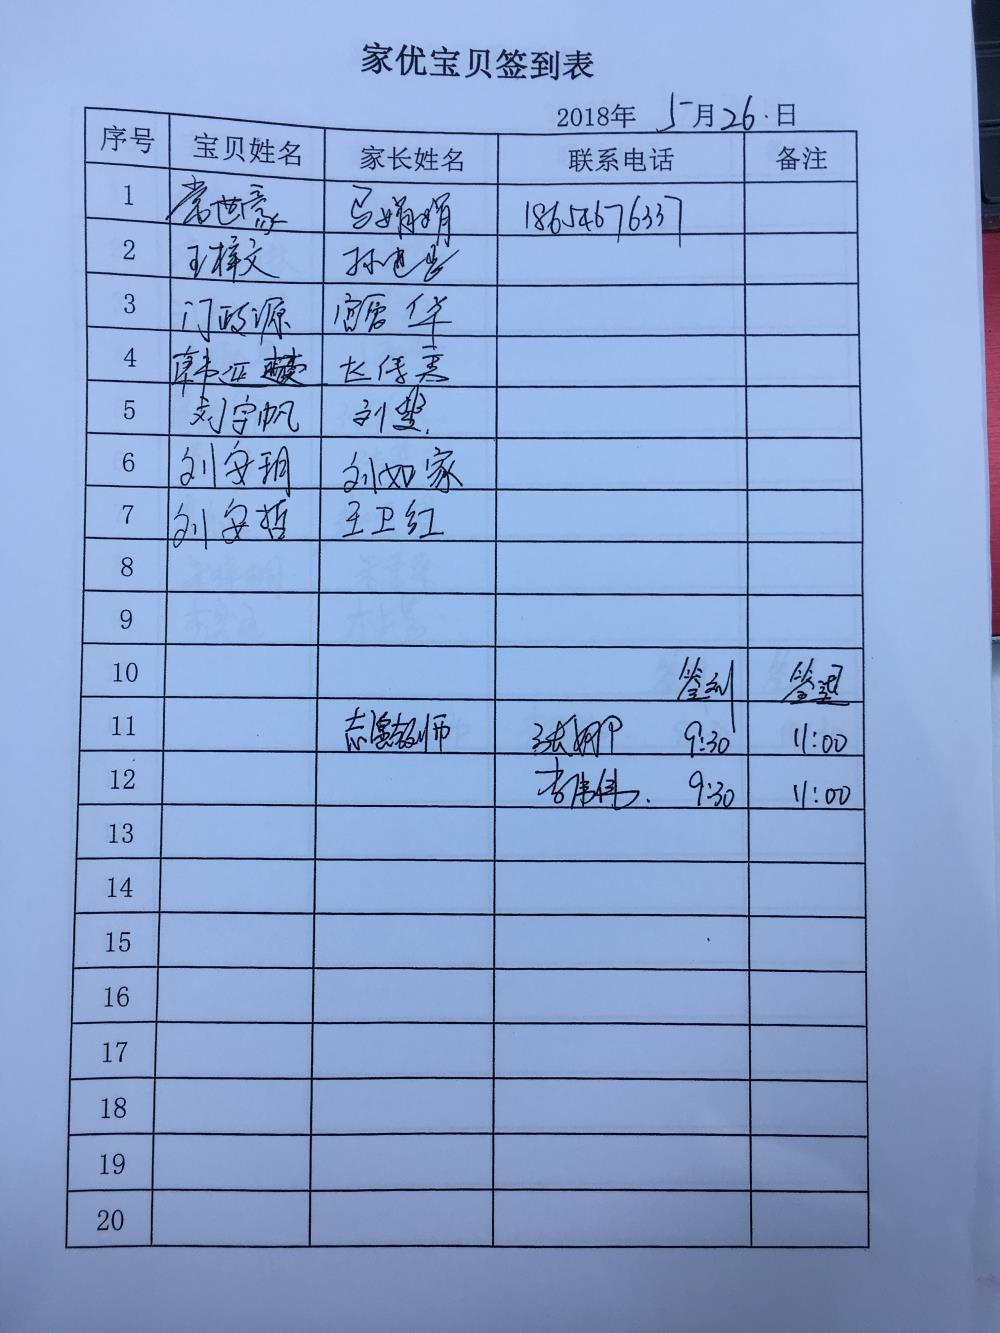 家优宝贝签到表
2018年 5月26日
序号 宝贝姓名 家长姓名 联系电话 备注
1 常世豪 马娟娟 18654676337
2 王梓文 孙
3 门政源 华
4 韩亚 赵传亮
5 刘宇帆 刘楚
6 刘安玥 刘如家
7 刘安哲 王卫红
8
9
10 签到 签退
11 志愿教师 张 9:30 11:00
12 李伟伟 9:30 11:00
13
14
15
16
17
18
19
20